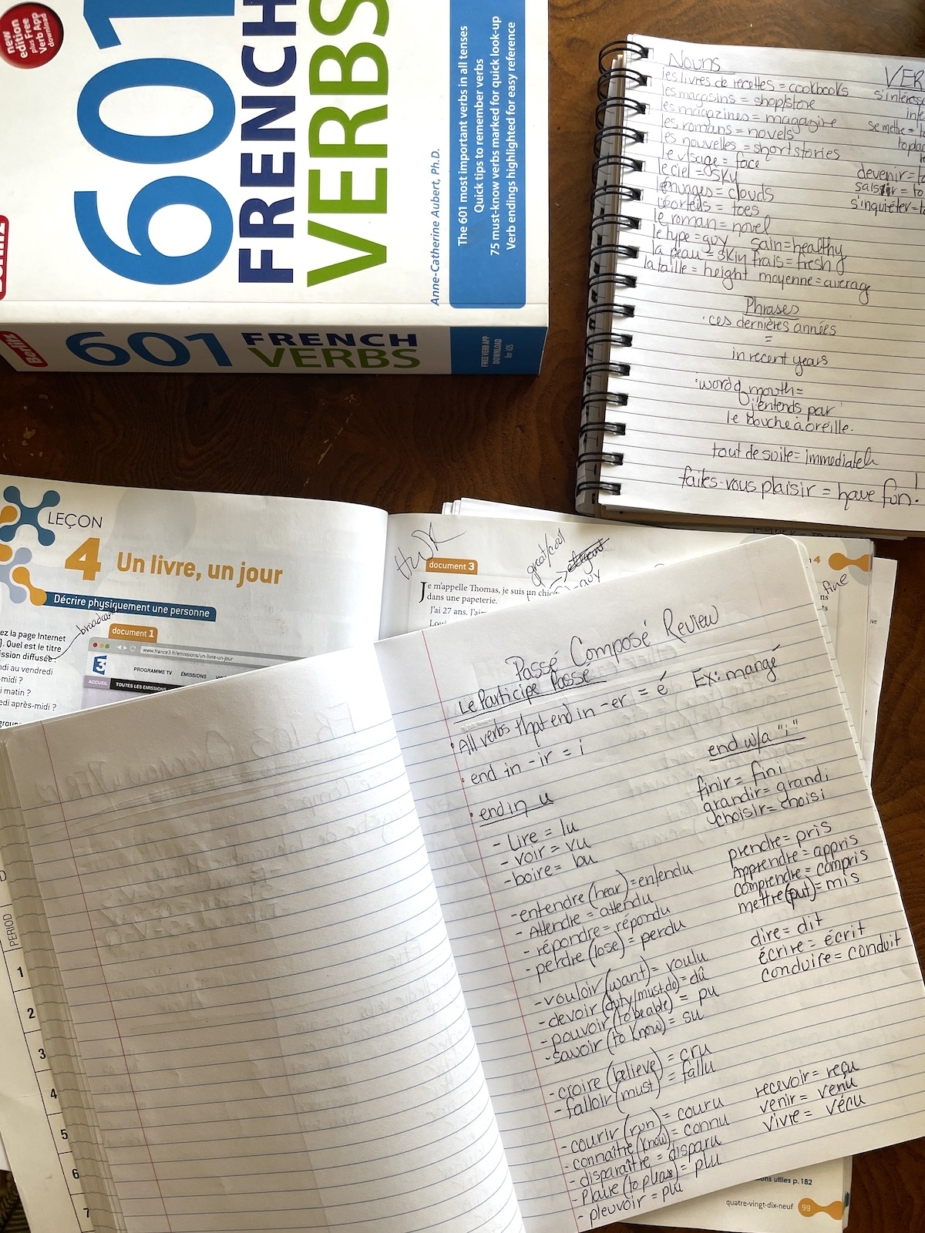 new
edition
Free
plus Free
Verb App
download
601
FRENCH
VERBS
Anne-Catherine Aubert, Ph.D.
The 601 most important verbs in all tenses
Quick tips to remember verbs
75 must-know verbs marked for quick look-up
Verb endings highlighted for easy reference
Berlitz
601 FRENCH
VERBS
FREE VERB APP
DOWNLOAD
for iOS
Nouns
les livres de recettes = cookbooks
les magasins = shop/store
les magazines = magazine
les romans = novels
les nouvelles = short stories
le visage = face
le ciel = sky
les nuages = clouds
les orteils = toes
le roman = novel
le type = guy sain = healthy
la peau = skin frais = fresh
la taille = height moyenne = average
Phrases
· ces dernières années
=
in recent years
· word of mouth =
j'entends par
le bouche à oreille.
tout de suite = immediately
faites-vous plaisir = have fun!
VER
devenir =
saisir = to
s'inquiéter = t
LEÇON
4 Un livre, un jour
Décrire physiquement une personne
broadcast
ez la page Internet
]. Quel est le titre
ission diffusée
di au vendredi
-midi ?
i matin ?
edi après-midi ?
document 1
www.france3.fr/emissions/un-livre-un-jour
3
PROGRAMME TV ÉMISSIONS
ACCUEIL TOUTES LES ÉMISSIONS
HWK
document 3
great/cool
guy
Je m'appelle Thomas, je suis un chic
dans une papeterie.
J'ai 27 ans. J'ai
fine
Passé Composé Review
Le Participe Passé
· All verbs that end in -er = é EX: mangé
· end in -ir = i
· end in u
- Lire = lu
- voir = vu
- boire = bu
- entendre (hear) = entendu
- Attendre = attendu
- répondre = répondu
- perdre (lose) = perdu
- vouloir (want) = voulu
- devoir (duty/must do) = dû
- pouvoir (to be able) = pu
- savoir (to know) = su
- croire (believe) = cru
- falloir (must) = fallu
- courir (run) = couru
- connaître (know) = connu
- disparaître = disparu
- plaire (to please) = plu
- pleuvoir = plu
end w/a "i"
finir = fini
grandir = grandi
choisir = choisi
prendre = pris
Apprendre = appris
comprendre = compris
mettre (put) = mis
dire = dit
écrire = écrit
conduire = conduit
recevoir = reçu
venir = venu
vivre = vécu
PERIOD
1
2
3
4
5
6
7
ons utiles p. 182
quatre-vingt-dix-neuf 99